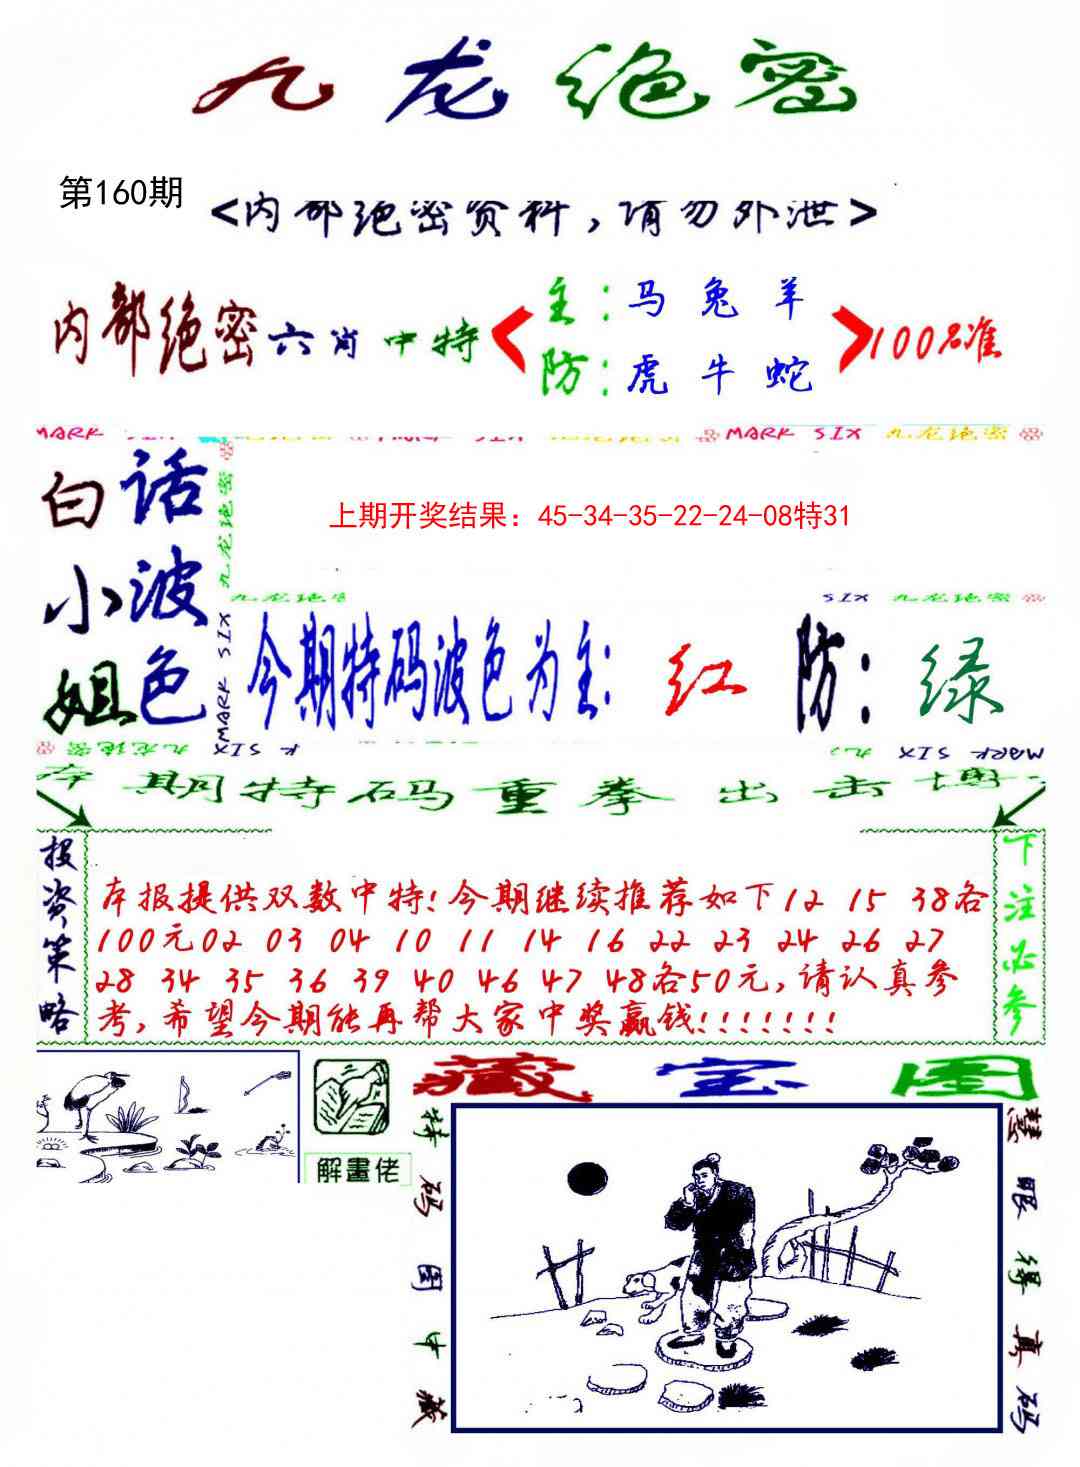 九龙绝密
第160期
<内部绝密资料,请勿外泄>
内部绝密六肖中特
主:马 兔 羊
防:虎 牛 蛇
100%准
MARK SIX 九龙绝密 MARK SIX 九龙绝密
白小姐
话波色
九龙绝密
MARK SIX
上期开奖结果：45-34-35-22-24-08特31
九龙绝密
SIX 九龙绝密
今期特码波色为主:红 防:绿
九龙绝密 MARK SIX
MARK SIX
本期特码重拳出击博
投资策略
下注必参
本报提供双数中特!今期继续推荐如下12 15 38各
100元02 03 04 10 11 14 16 22 23 24 26 27
28 34 35 36 39 40 46 47 48各50元,请认真参
考,希望今期能再帮大家中奖赢钱!!!!!!!
解畫佬
藏宝图
特码图中藏
慧眼得真码